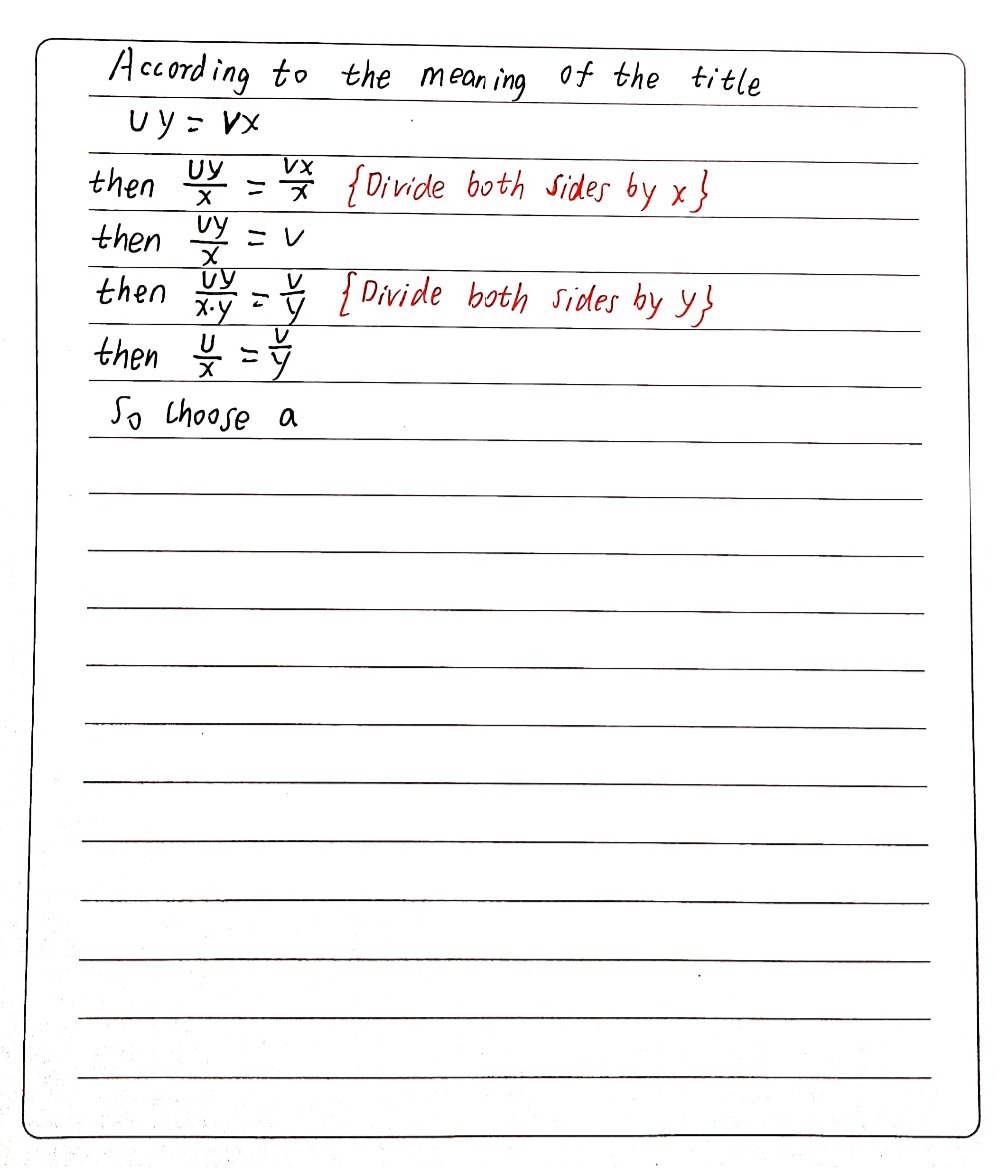 According to the meaning of the title
uy = vx
then uy/x = vx/x {Divide both sides by x}
then uy/x = v
then uy/x·y = v/y {Divide both sides by y}
then u/x = v/y
So choose a